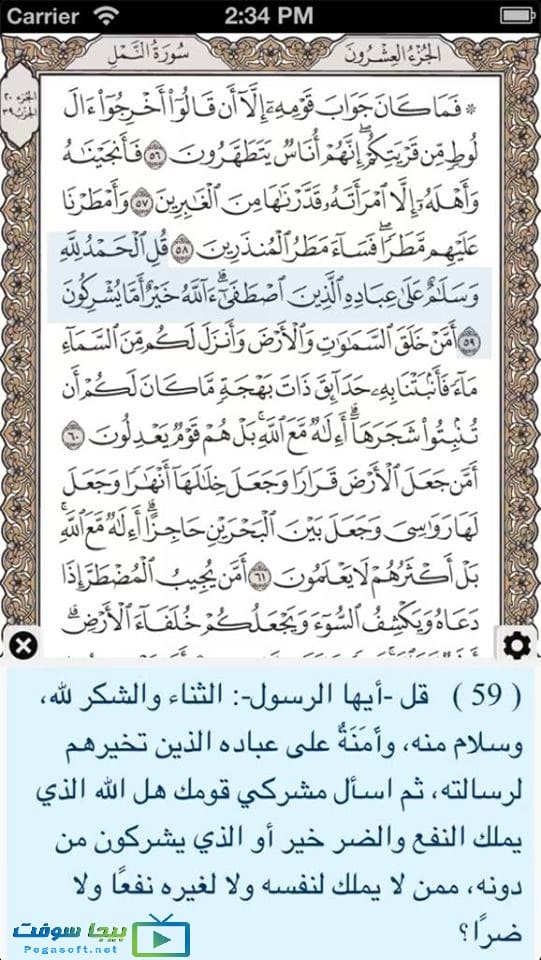 Carrier 2:34 PM
الجُزْءُ العِشْرُونَ
سُورَةُ النَّمْلِ
الجزء ٢٠
الحزب ٣٩
۞ فَمَا كَانَ جَوَابَ قَوْمِهِۦٓ إِلَّآ أَن قَالُوٓا۟ أَخْرِجُوٓا۟ ءَالَ
لُوطٍ مِّن قَرْيَتِكُمْ ۖ إِنَّهُمْ أُنَاسٌ يَتَطَهَّرُونَ ٥٦ فَأَنجَيْنَٰهُ
وَأَهْلَهُۥٓ إِلَّا ٱمْرَأَتَهُۥ قَدَّرْنَٰهَا مِنَ ٱلْغَٰبِرِينَ ٥٧ وَأَمْطَرْنَا
عَلَيْهِم مَّطَرًا ۖ فَسَآءَ مَطَرُ ٱلْمُنذَرِينَ ٥٨ قُلِ ٱلْحَمْدُ لِلَّهِ
وَسَلَٰمٌ عَلَىٰ عِبَادِهِ ٱلَّذِينَ ٱصْطَفَىٰٓ ۗ ءَآللَّهُ خَيْرٌ أَمَّا يُشْرِكُونَ
٥٩ أَمَّنْ خَلَقَ ٱلسَّمَٰوَٰتِ وَٱلْأَرْضَ وَأَنزَلَ لَكُم مِّنَ ٱلسَّمَآءِ
مَآءً فَأَنۢبَتْنَا بِهِۦ حَدَآئِقَ ذَاتَ بَهْجَةٍ مَّا كَانَ لَكُمْ أَن
تُنۢبِتُوا۟ شَجَرَهَآ ۗ أَءِلَٰهٌ مَّعَ ٱللَّهِ ۚ بَلْ هُمْ قَوْمٌ يَعْدِلُونَ ٦٠
أَمَّن جَعَلَ ٱلْأَرْضَ قَرَارًا وَجَعَلَ خِلَٰلَهَآ أَنْهَٰرًا وَجَعَلَ
لَهَا رَوَٰسِىَ وَجَعَلَ بَيْنَ ٱلْبَحْرَيْنِ حَاجِزًا ۗ أَءِلَٰهٌ مَّعَ ٱللَّهِ ۚ
بَلْ أَكْثَرُهُمْ لَا يَعْلَمُونَ ٦١ أَمَّن يُجِيبُ ٱلْمُضْطَرَّ إِذَا
دَعَاهُ وَيَكْشِفُ ٱلسُّوٓءَ وَيَجْعَلُكُمْ خُلَفَآءَ ٱلْأَرْضِ ۗ
( 59 ) قل -أيها الرسول-: الثناء والشكر لله،
وسلام منه، وأمَنَةٌ على عباده الذين تخيرهم
لرسالته، ثم اسأل مشركي قومك هل الله الذي
يملك النفع والضر خير أو الذي يشركون من
دونه، ممن لا يملك لنفسه ولا لغيره نفعًا ولا
ضرًا؟
بيجا سوفت
Pegasoft.net